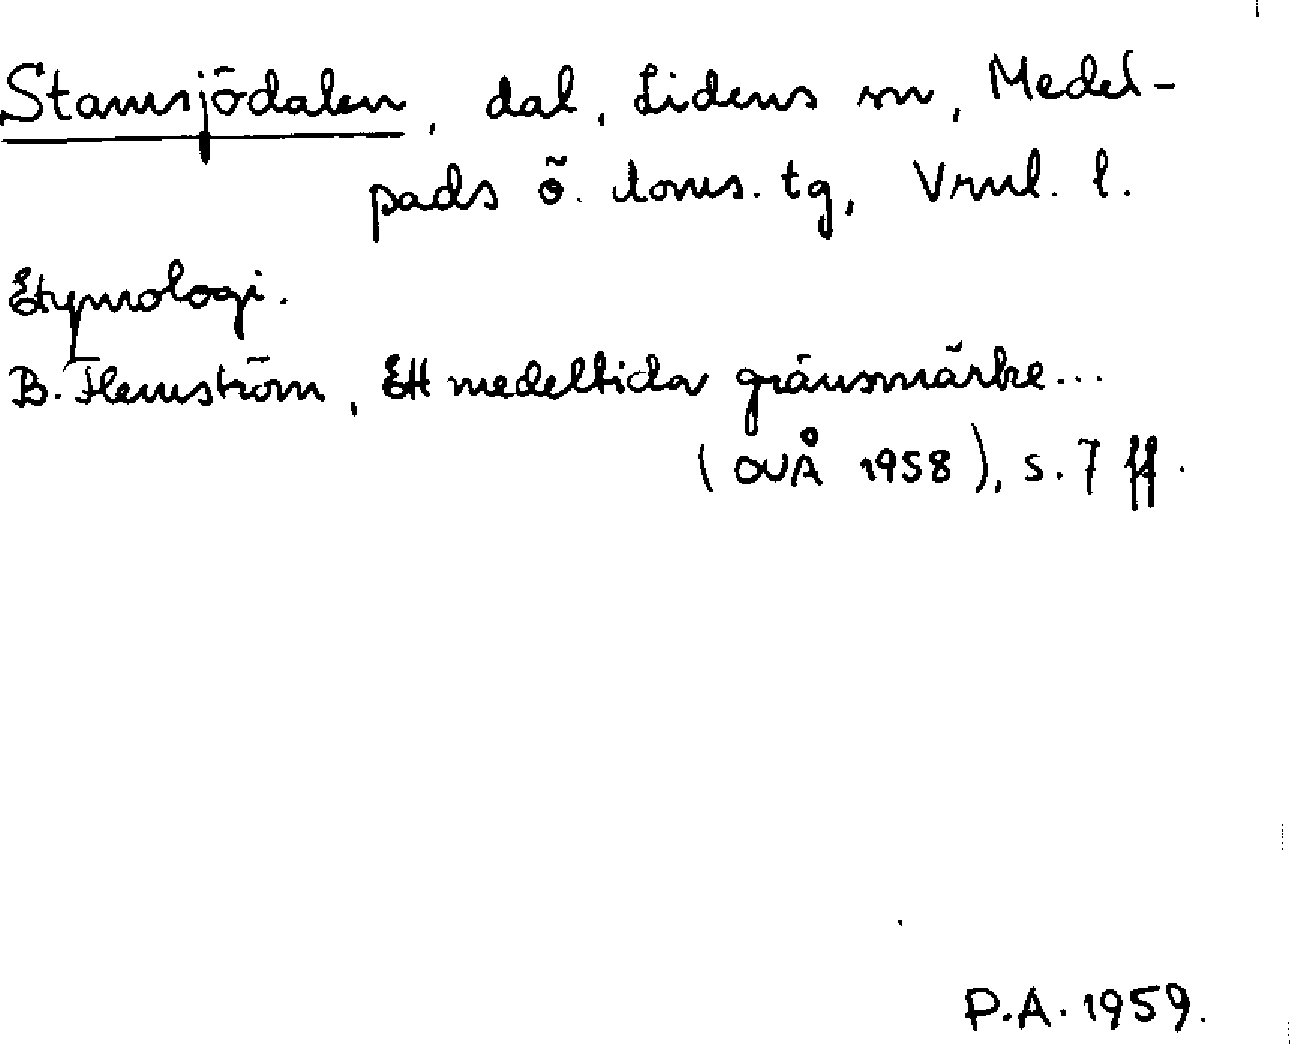 Stamsjödalen, dal, Lidens sn, Medel-
pads ö. doms. tg, Vrnl. l.
Etymologi.
B. Flemström, Ett medeltida gränsmärke...
(OUÅ 1958), s. 7 ff.
P.A. 1959.